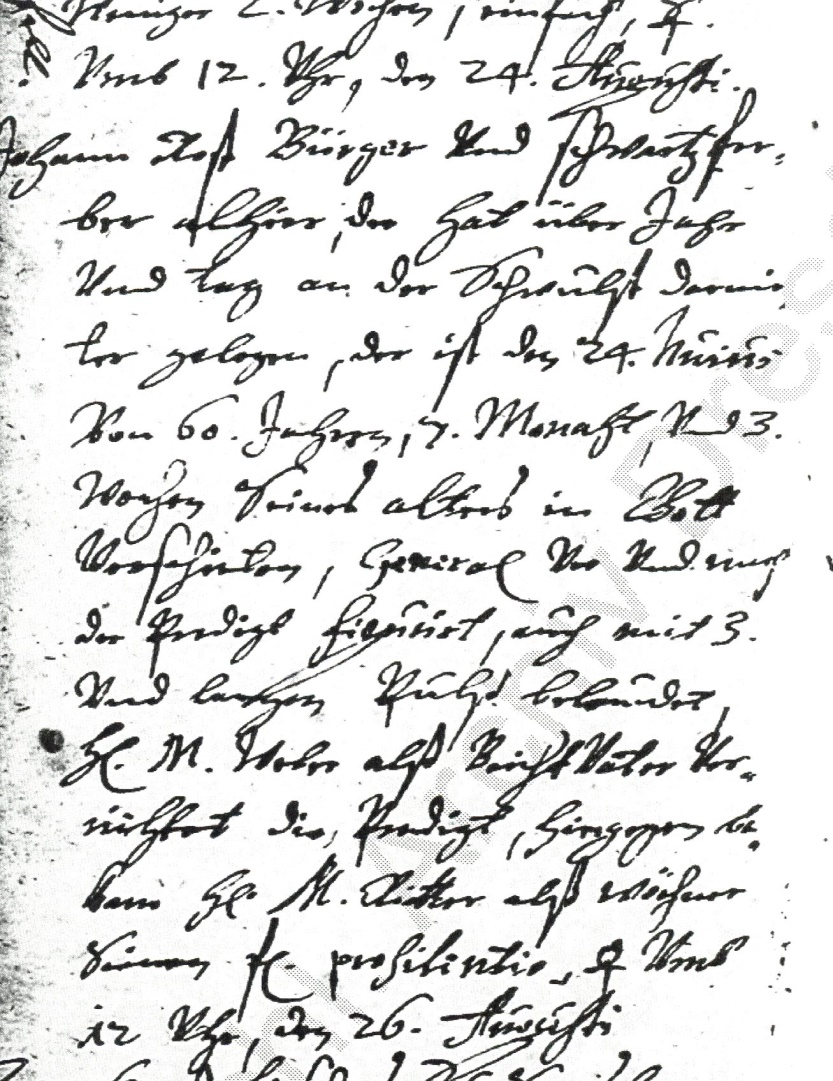 weniger 2. Wochen, einfach, ♀.
Vmb 12. Vhr, den 24. Augusti.
Johann Rost Bürger Vnd schwartzfer-
ber alhier, der hat über Jahr
Vnd tag an der Schwulst darnie-
ter gelegen, der ist den 24. huius
Von 60. Jahren, 7. Monaht, Vnd 3.
Wochen Seines alters in Gott
Verschieden, General Vor Vnd nach
der Predigt figurirt, auch mit 3.
Vnd langen Pulß beleudet,
Hl. M. Weber alß BeichtVater Ver-
richtet die Predigt, hingegen be-
kam Hl. M. Ritter alß wöchner
Seinen fl. pro silentio, ♀ Vmb
12 Vhr, den 26. Augusti